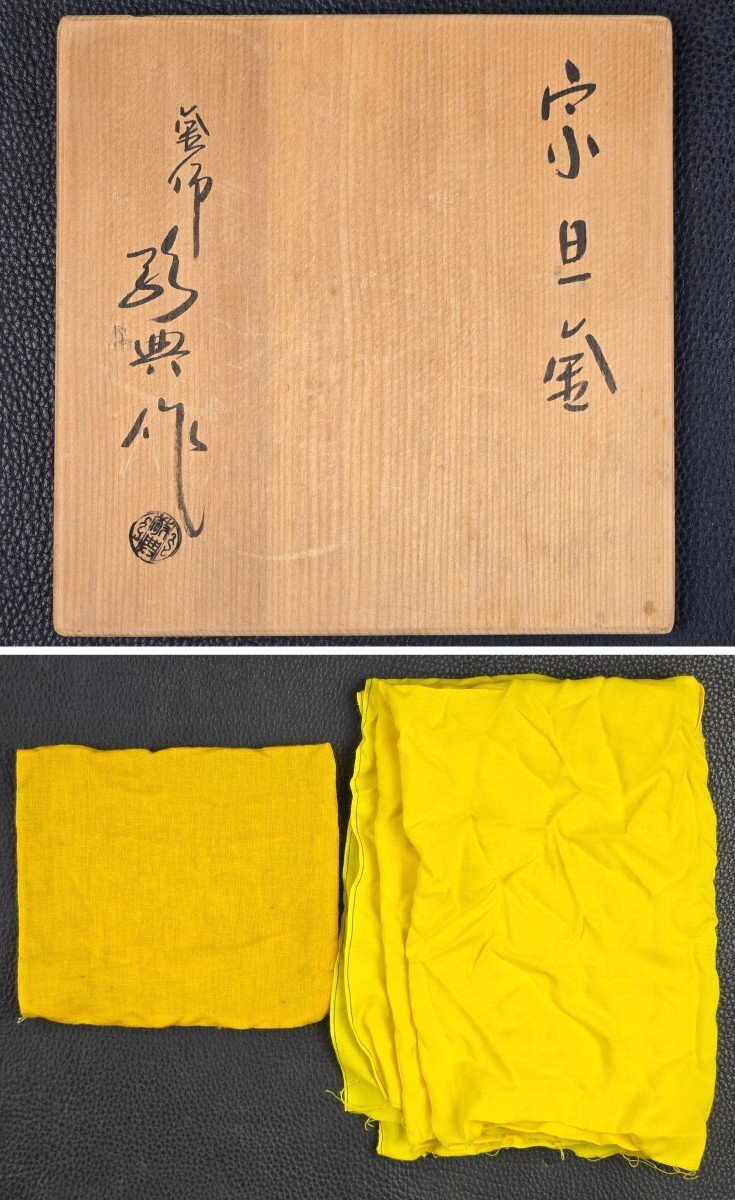 宗旦釜
釜師 敬典作
敬典